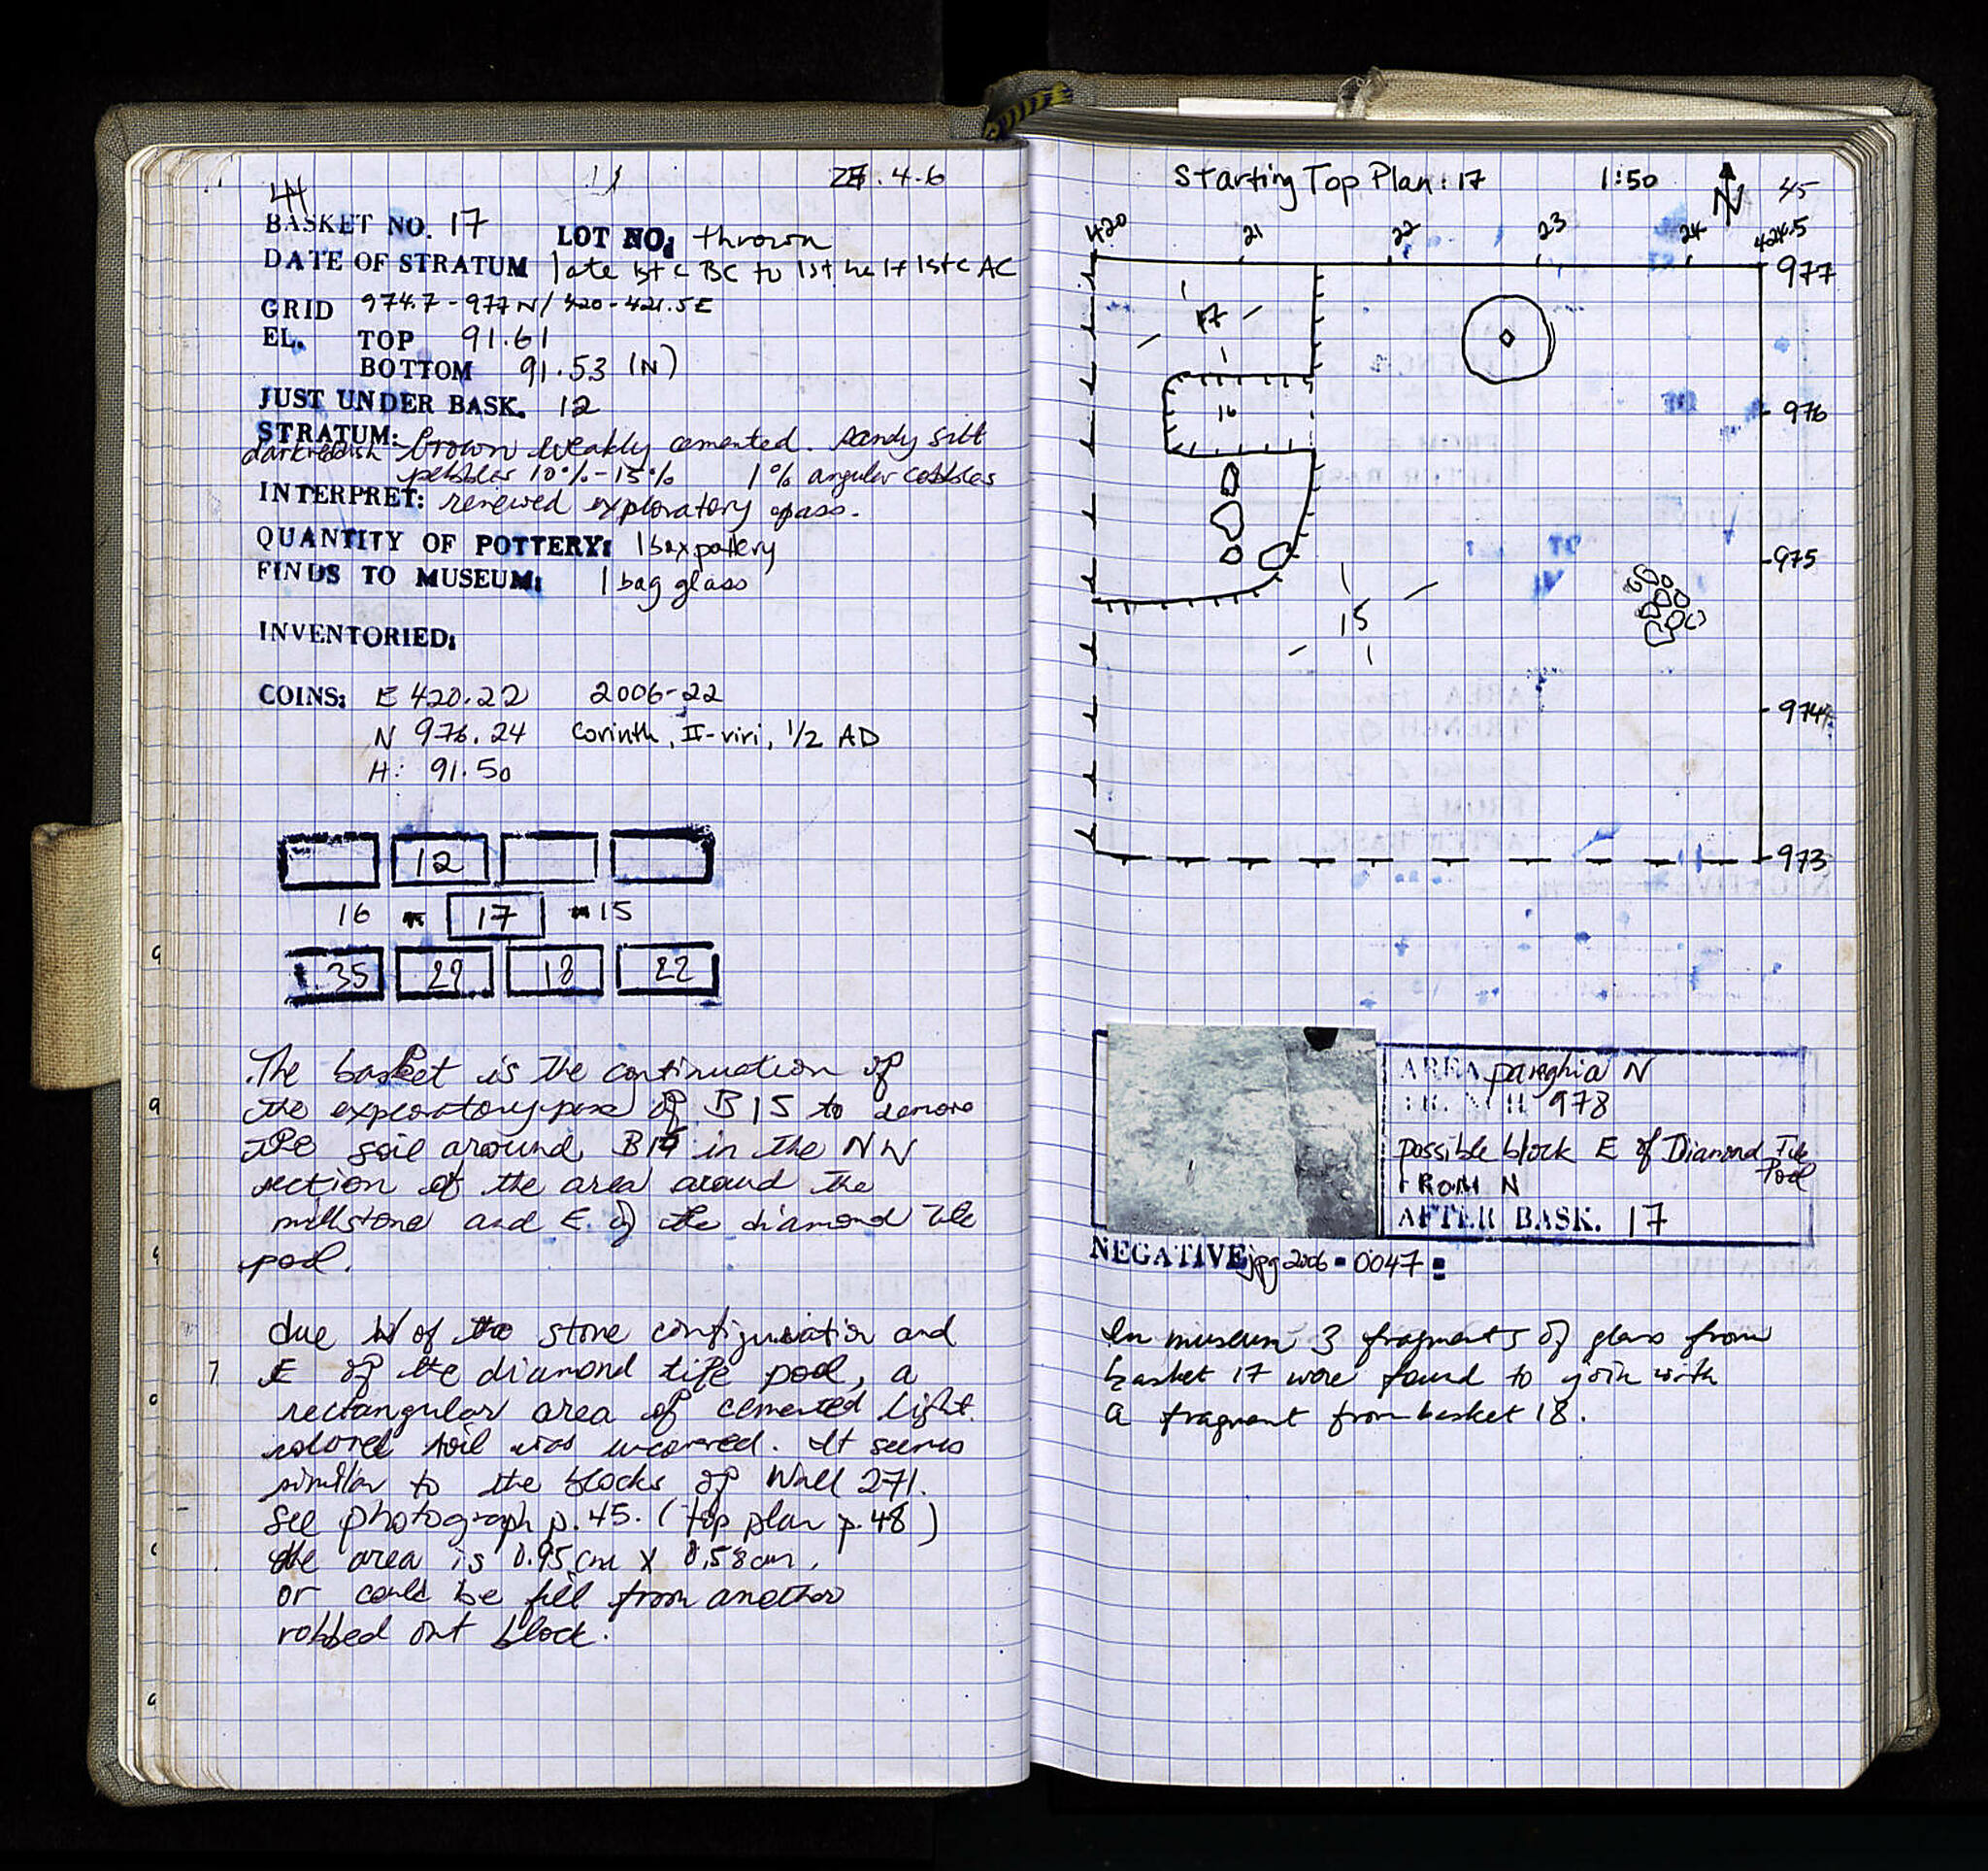 44
.4.6
BASKET NO. 17 LOT NO: thrown
DATE OF STRATUM late 1st c BC to 1st half 1st c AC
GRID 974.7-977 N/420-421.5E
EL. TOP 91.61
BOTTOM 91.53 (N)
JUST UNDER BASK. 12
STRATUM:
dark reddish brown weakly cemented. sandy silt
pebbles 10%-15% 1% angular cobbles
INTERPRET: renewed exploratory pass.
QUANTITY OF POTTERY: 1 box pottery
FINDS TO MUSEUM: 1 bag glass
INVENTORIED:
COINS: E 420.22 2006-22
N 976.24 Corinth, II-viri, 1/2 AD
H: 91.50
12
16 = 17 = 15
35 29 18 22
The basket is the continuation of
the exploratory pass of B15 to remove
the soil around in the NW
section of the area around the
millstone and E of the diamond tile
pool.
due W of the stone configuration and
E of the diamond tile pool, a
rectangular area of cemented light
colored soil was uncovered. It seems
similar to the blocks of Wall 271.
See photograph p. 45. (top plan p. 48)
the area is 0.95cm X 0.58cm,
or could be fill from another
robbed out block.
Starting Top Plan: 17 1:50 N 45
420 21 22 23 24 424.5
977
17
976
16
975
15
974
973
AREA panaghia N
978
possible block E of Diamond Tile
Pool
FROM N
AFTER BASK. 17
NEGATIVE jpg 2006-0047
In museum 3 fragments of glass from
basket 17 were found to join with
a fragment from basket 18.